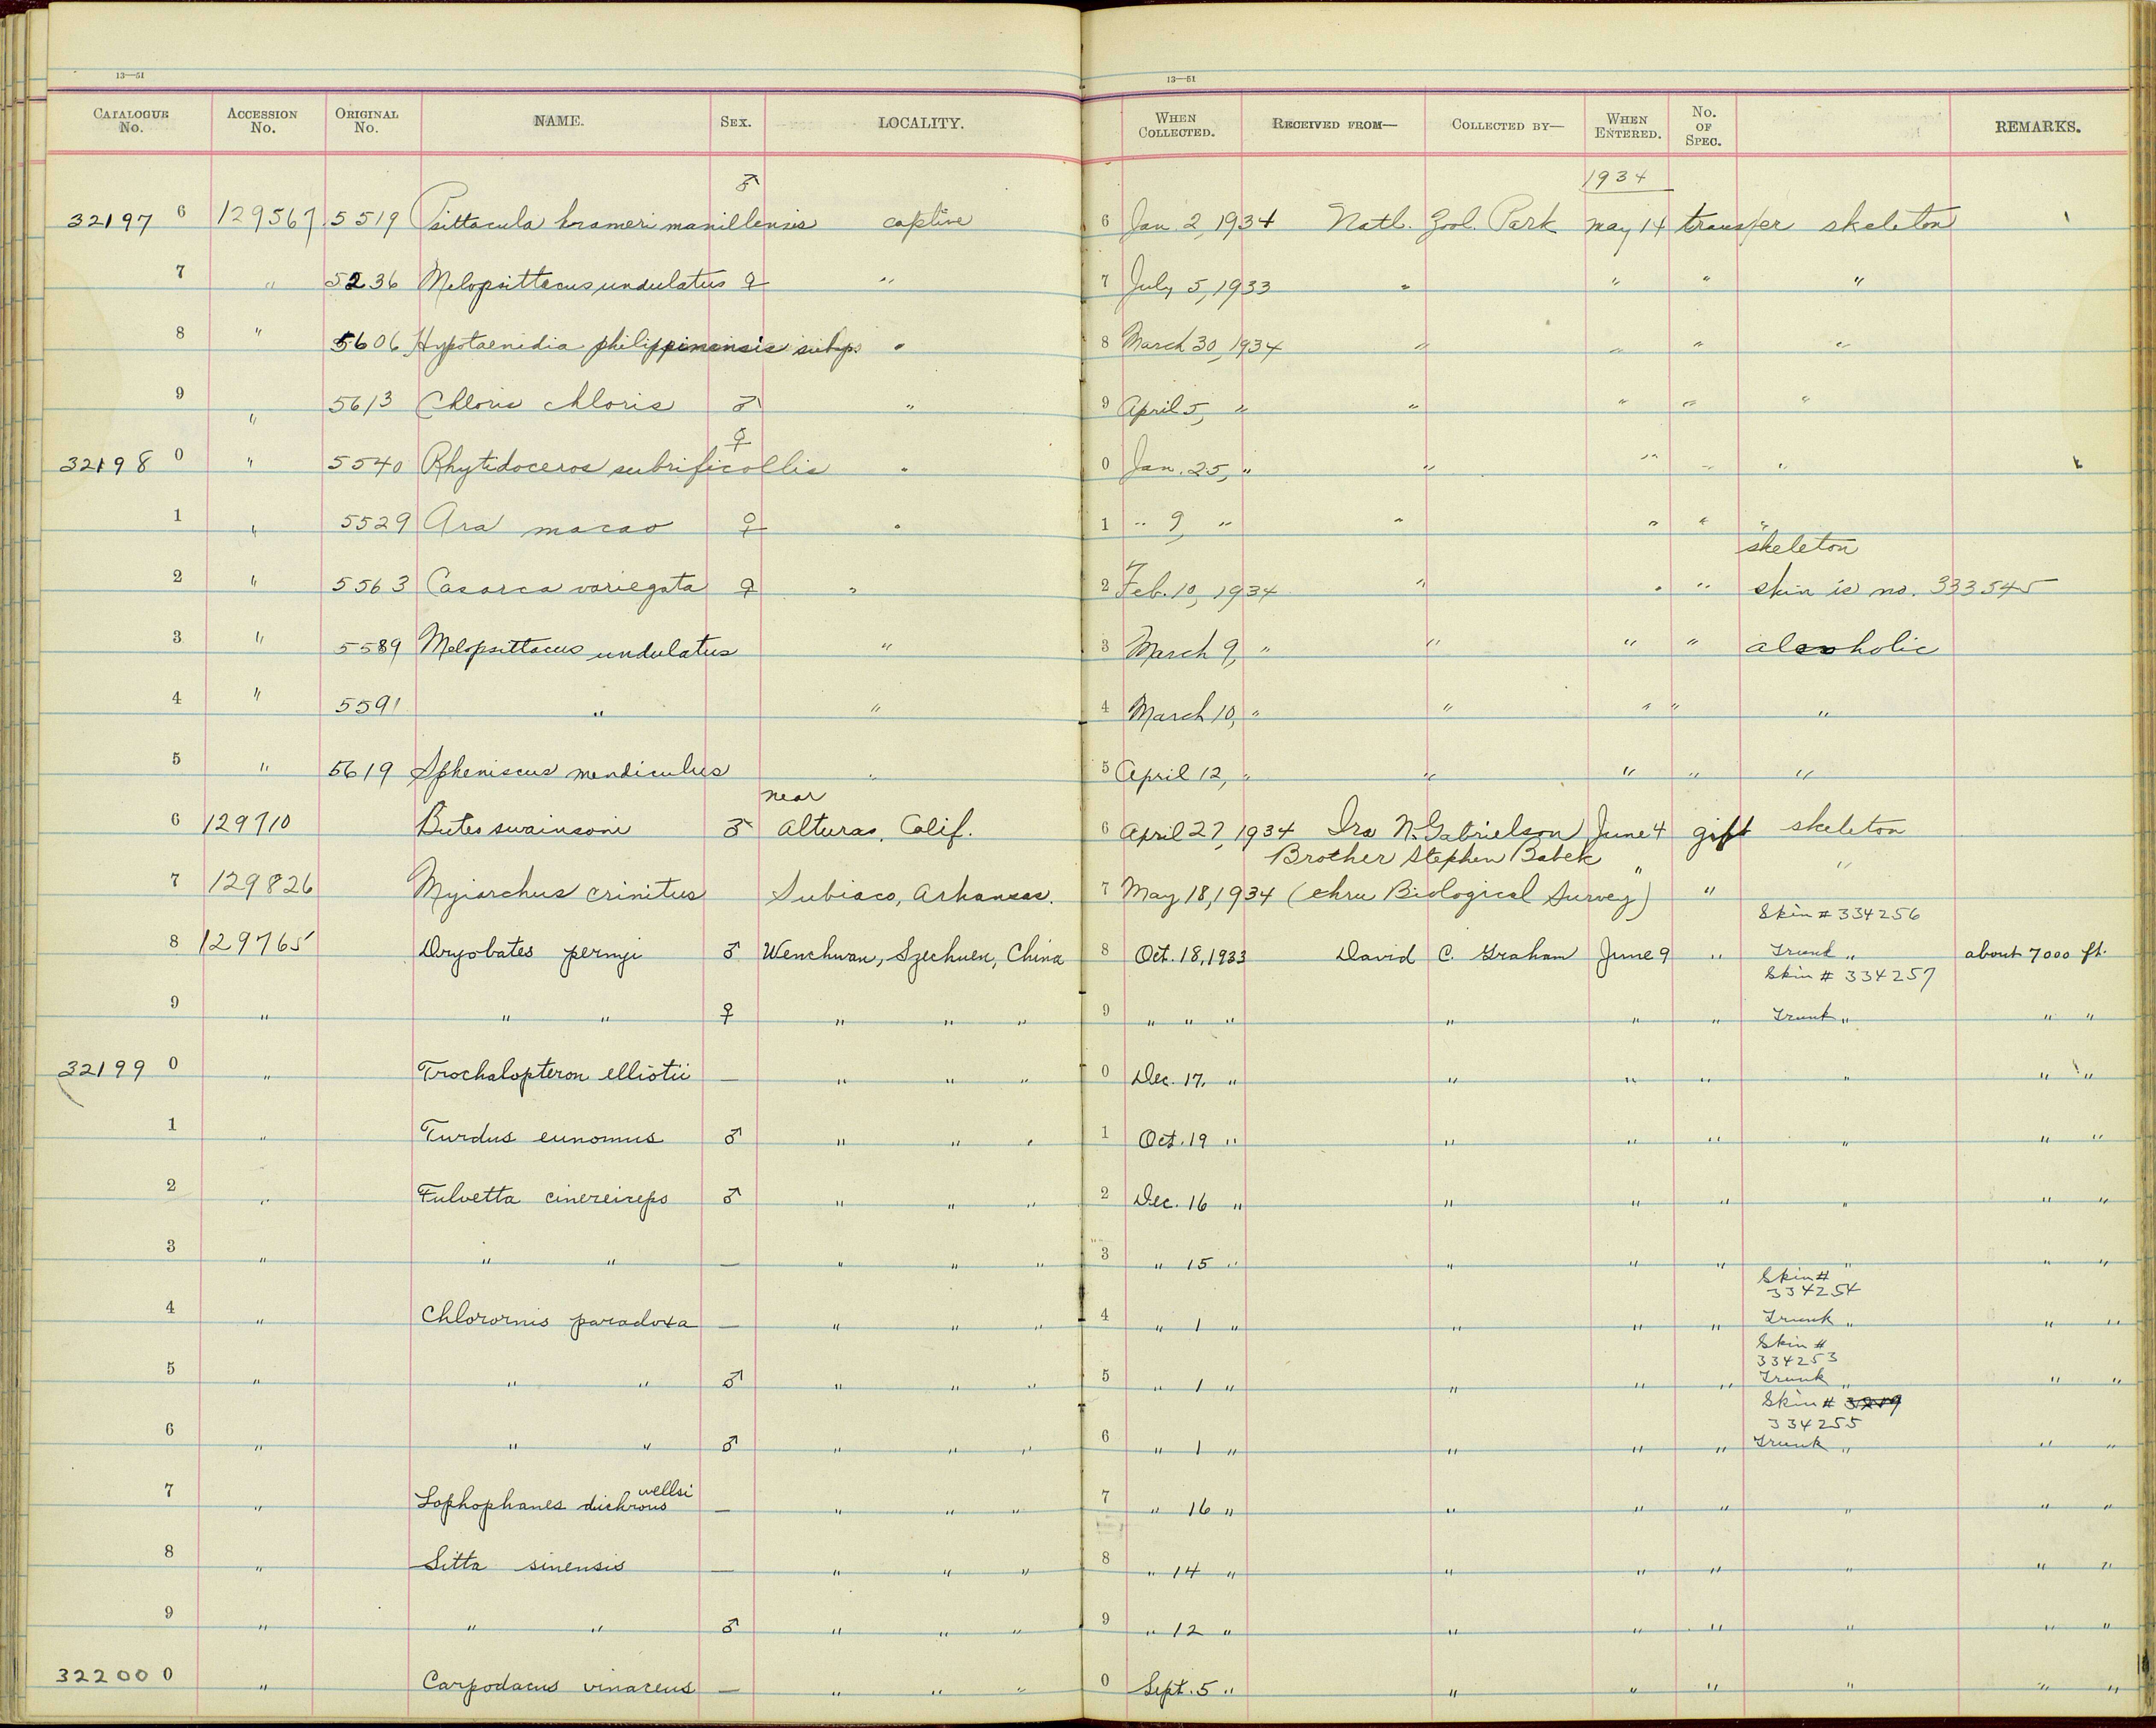 13—51 13—51
CATALOGUE No. ACCESSION No. ORIGINAL No. NAME. SEX. LOCALITY. WHEN COLLECTED. RECEIVED FROM— COLLECTED BY— WHEN ENTERED. No. OF SPEC. REMARKS.
♂ 1934
32197 6 129567 5519 Psittacula krameri manillensis captive 6 Jan. 2, 1934 Natl. Zool. Park May 14 transfer skeleton
7 " 5236 Melopsittacus undulatus ♀ " 7 July 5, 1933 " " " "
8 " 5606 Hypotaenidia philippinensis subsp. " 8 March 30, 1934 " " " "
9 " 5613 Chloris chloris ♂ " 9 April 5, " " " " "
♀
32198 0 " 5540 Rhytidoceros subrificollis " 0 Jan. 25, " " " " "
1 " 5529 Ara macao ♀ " 1 " 9, " " " " "
skeleton
2 " 5563 Casarca variegata ♀ " 2 Feb. 10, 1934 " " " skin is no. 333545
3 " 5589 Melopsittacus undulatus " 3 March 9, " " " " alcoholic
4 " 5591 " " 4 March 10, " " " " "
5 " 5619 Spheniscus mendiculus " 5 April 12, " " " " "
near
6 129710 Buteo swainsoni ♂ Alturas, Calif. 6 April 27, 1934 Ira N. Gabrielson June 4 gift skeleton
Brother Stephen Babek " "
7 129826 Myiarchus crinitus Subiaco, Arkansas. 7 May 18, 1934 (thru Biological Survey) "
Skin # 334256
8 129765 Dryobates pernyi ♂ Wenchwan, Szechuen, China 8 Oct. 18, 1933 David C. Graham June 9 " Trunk " about 7000 ft.
Skin # 334257
9 " " " ♀ " " " 9 " " " " " " Trunk " " "
32199 0 " Trochalopteron elliotii — " " " 0 Dec. 17. " " " " " " "
1 " Turdus eunomus ♂ " " " 1 Oct. 19 " " " " " " "
2 " Fulvetta cinereiceps ♂ " " " 2 Dec. 16 " " " " " " "
3 " " " — " " " 3 " 15 " " " " " " "
Skin #
334254
4 " Chlorornis paradoxa — " " " 4 " 1 " " " " Trunk " " "
Skin #
334253
5 " " " ♂ " " " 5 " 1 " " " " Trunk " " "
Skin # 3219
334255
6 " " " ♂ " " " 6 " 1 " " " " Trunk " " "
wellsi
7 " Lophophanes dichrous — " " " 7 " 16 " " " " " " "
8 " Sitta sinensis — " " " 8 " 14 " " " " " " "
9 " " " ♂ " " " 9 " 12 " " " " " " "
32200 0 " Carpodacus vinaceus — " " " 0 Sept. 5 " " " " " " "